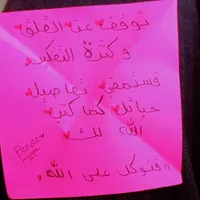 توقف عن القلق
و كثرة التفكير
فستمضي تفاصيل
حياتك كما كتب
الله لك
Please
"فتوكل على الله"